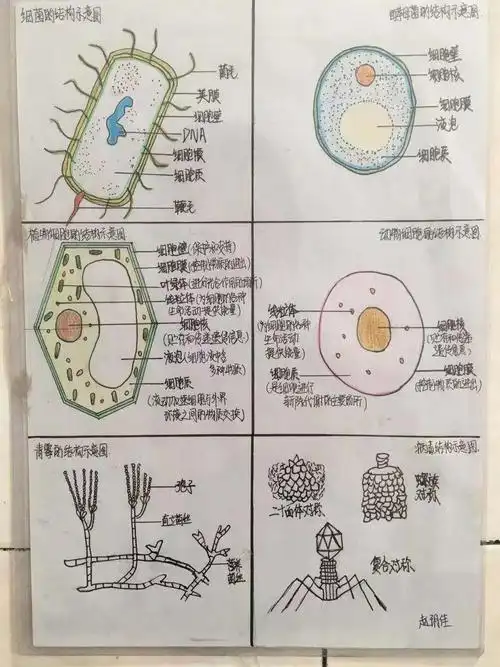 细菌的结构示意图
菌毛
荚膜
细胞壁
DNA
细胞膜
细胞质
鞭毛
酵母菌的结构示意图
细胞壁
细胞核
细胞膜
液泡
细胞质
植物细胞的结构示意图
细胞壁(保护和支持)
细胞膜(控制物质的进出)
叶绿体(进行光合作用的场所)
线粒体(为细胞的各种
生命活动提供能量)
细胞核
(贮存和传递遗传信息)
液泡(细胞液中含
多种物质)
细胞质
(流动加速细胞与外界
环境之间的物质交换)
动物细胞的结构示意图
线粒体
(为细胞的各种
生命活动
提供能量)
细胞质
(是细胞进行
新陈代谢的主要场所)
细胞核
(贮存和传递
遗传信息)
细胞膜
(控制物质的进出)
青霉的结构示意图
孢子
直立菌丝
营养
菌丝
病毒结构示意图
二十面体对称
螺旋
对称
复合对称